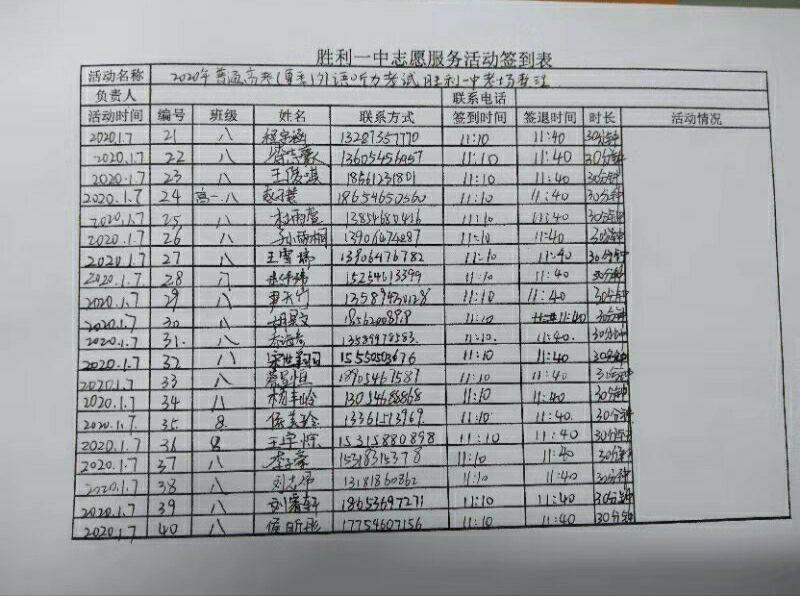 胜利一中志愿服务活动签到表
活动名称 2020年普通高考(夏季)外语听力考试胜利一中考场整理
负责人 联系电话
活动时间 编号 班级 姓名 联系方式 签到时间 签退时间 时长 活动情况
2020.1.7 21 八 13287357770 11:10 11:40 30分钟
2020.1.7 22 八 13605456057 11:10 11:40 30分钟
2020.1.7 23 八 王俊淇 18561231801 11:10 11:40 30分钟
2020.1.7 24 高一.八 18654650360 11:10 11:40 30分钟
2020.1.7 25 八 杜雨萱 13854680416 11:10 11:40 30分钟
2020.1.7 26 八 孙雨桐 13906474087 11:10 11:40 30分钟
2020.1.7 27 八 王雪瑞 13906476782 11:10 11:40 30分钟
2020.1.7 28 八 15254613399 11:10 11:40 30分钟
2020.1.7 29 八 13589430128 11:10 11:40 30分钟
2020.1.7 30 八 胡昊文 11:40 30分钟
2020.1.7 31. 八 13589978583. 11:10. 11:40. 30分钟
2020.1.7 32 八 宋世翔 15550503676 11:10 11:40 30分钟
2020.1.7 33 八 18905461581 11:10 11:40 30分钟
2020.1.7 34 八 杨丰岭 13054688868 11:10 11:40 30分钟
2020.1.7. 35 8. 侯美玲 13361513969. 11:10 11:40. 30分钟
2020.1.7 36 8 王宇 15315880898 11:10 11:40 30分钟
2020.1.7 37 八 李子豪 15318315378 11:10 11:40 30分钟
2020.1.7 38 八 刘志伟 13181860862 11:10 11:40 30分钟
2020.1.7 39 八 刘睿轩 18653697271 11:10 11:40 30分钟
2020.1.7 40 八 侯昕彤 17754607156 11:10 11:40 30分钟